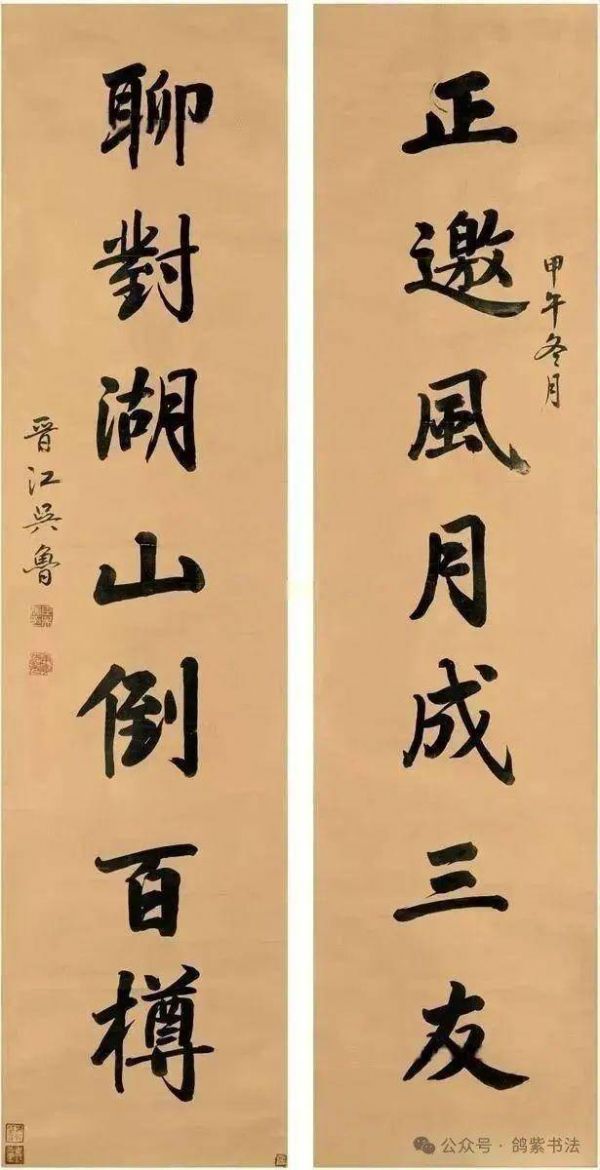 正邀風月成三友
甲午冬月
聊對湖山倒百樽
晉江吳魯
公众号·鸽紫书法